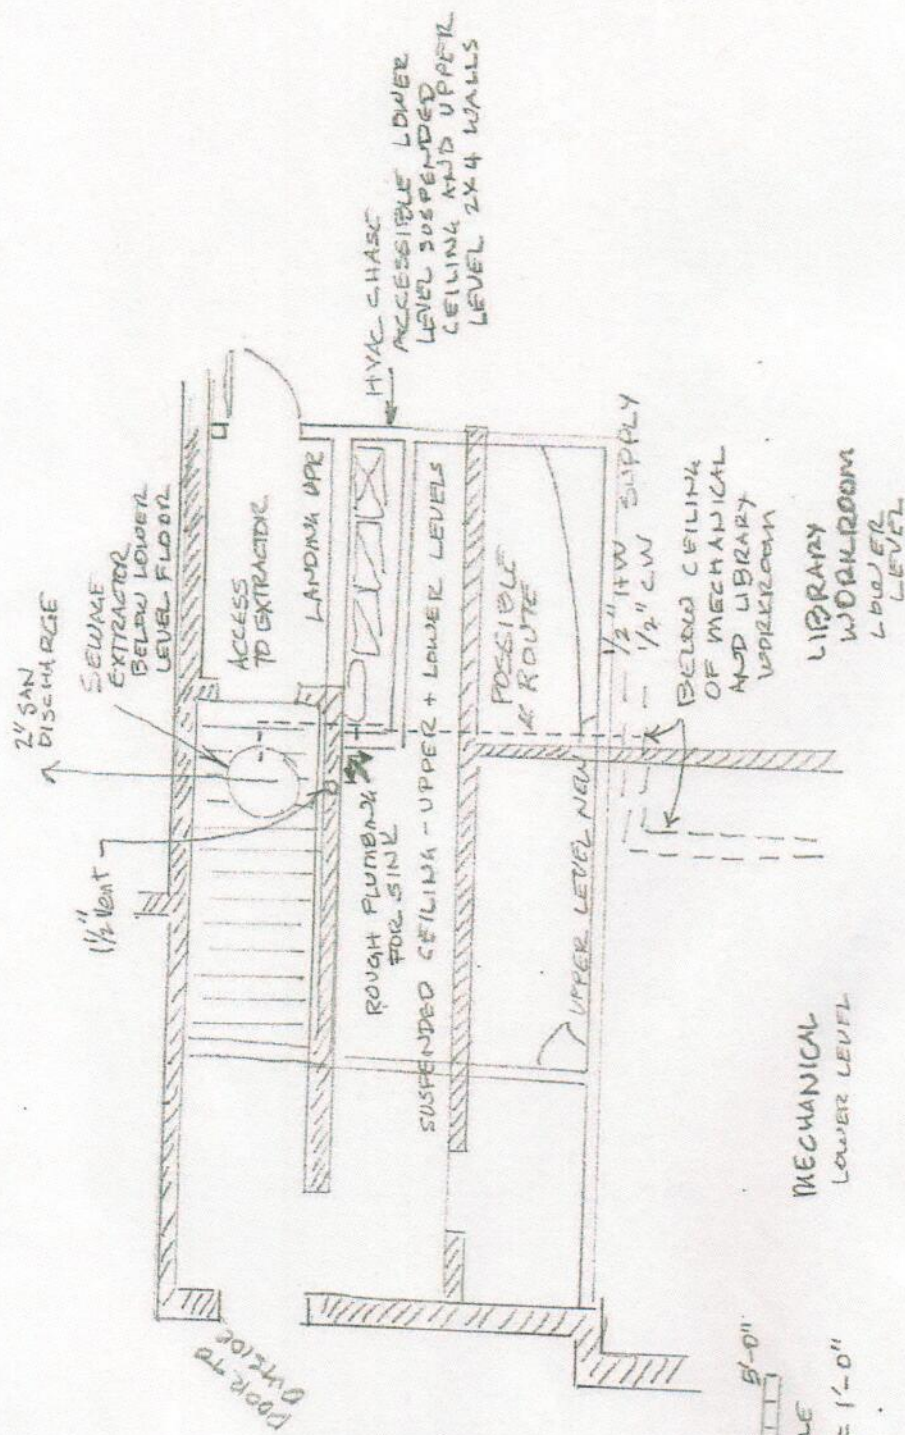 2" SAN
DISCHARGE
SEWAGE
EXTRACTOR
BELOW LOWER
LEVEL FLOOR
1½" Vent
ACCESS
TO EXTRACTOR
LANDING UPR
HVAC CHASE
ACCESSIBLE LOWER
LEVEL SUSPENDED
CEILING AND UPPER
LEVEL 2X4 WALLS
ROUGH PLUMBING
FOR SINK
SUSPENDED CEILING - UPPER + LOWER LEVELS
POSSIBLE
ROUTE
UPPER LEVEL NEW
1/2" HW
1/2" CW SUPPLY
BELOW CEILING
OF MECHANICAL
AND LIBRARY
WORKROOM
LIBRARY
WORKROOM
LOWER
LEVEL
MECHANICAL
LOWER LEVEL
DOOR TO
OUTSIDE
5'-0"
= 1'-0"